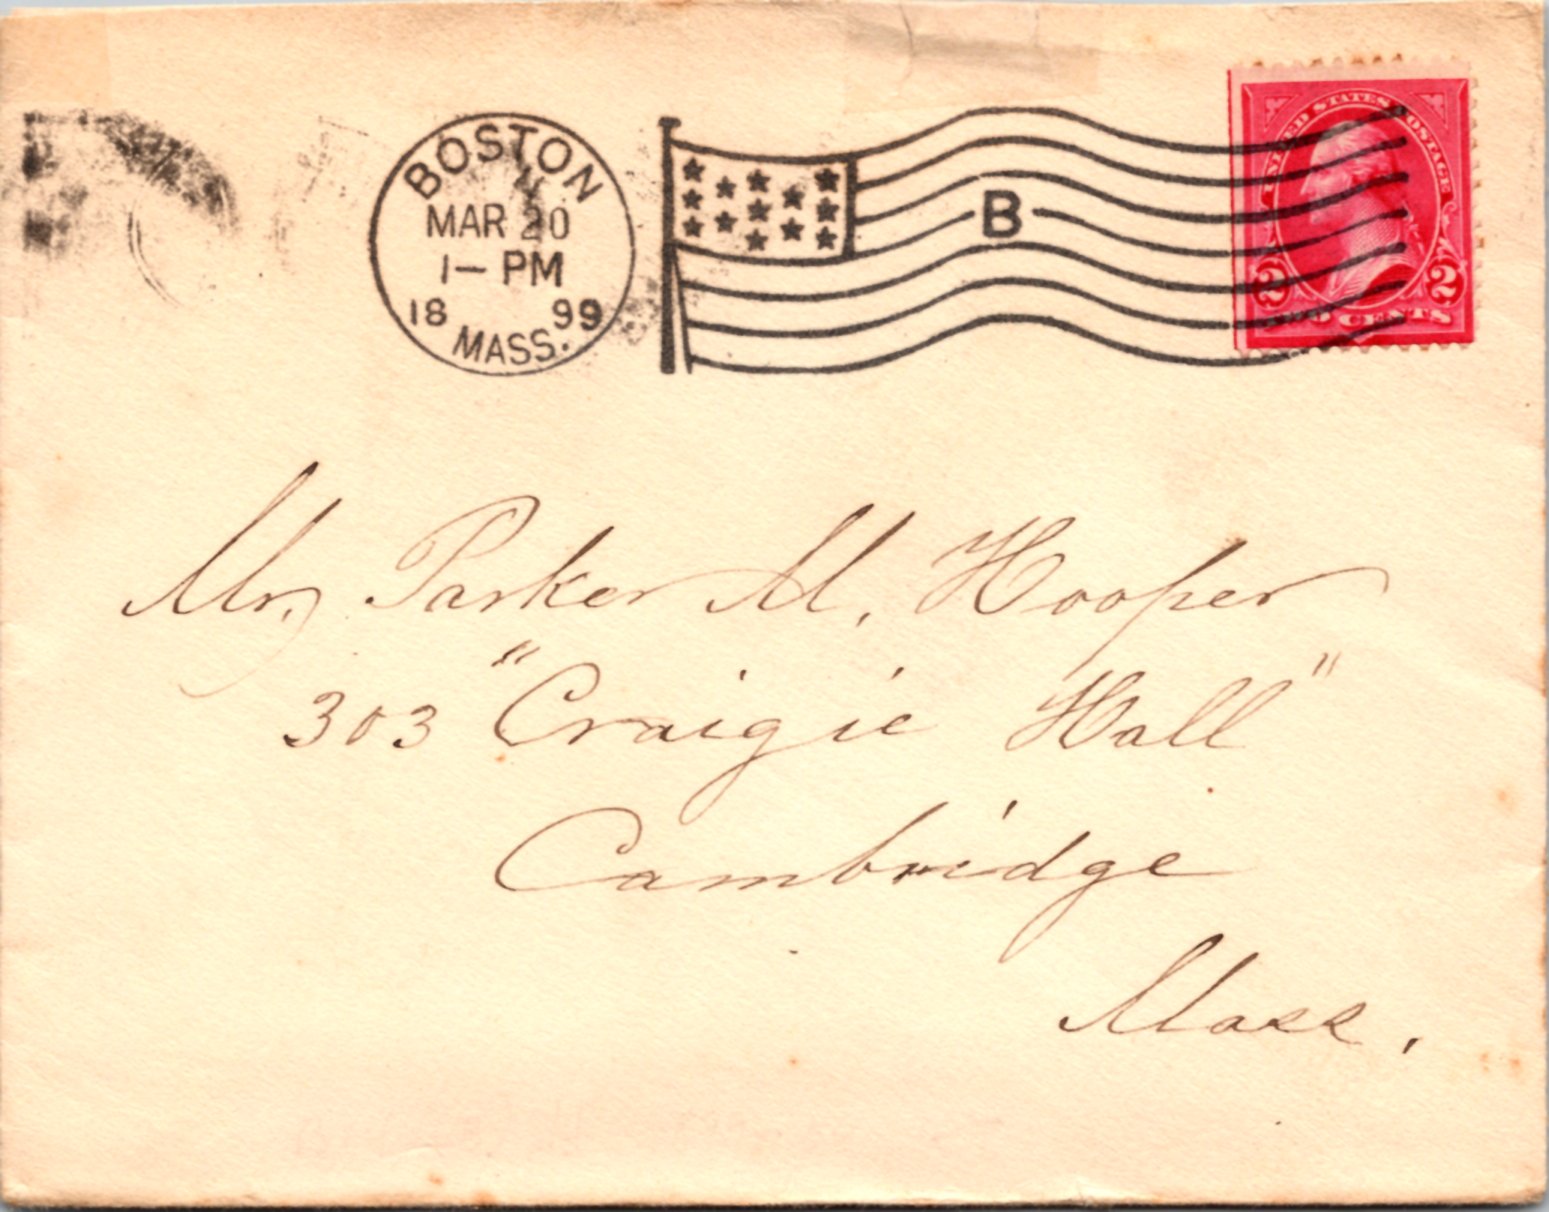 BOSTON
MAR 20
1– PM
18 99
MASS.
B
UNITED STATES POSTAGE
2 2
TWO CENTS
Mr. Parker M. Hooper
303 "Craigie Hall"
Cambridge
Mass.